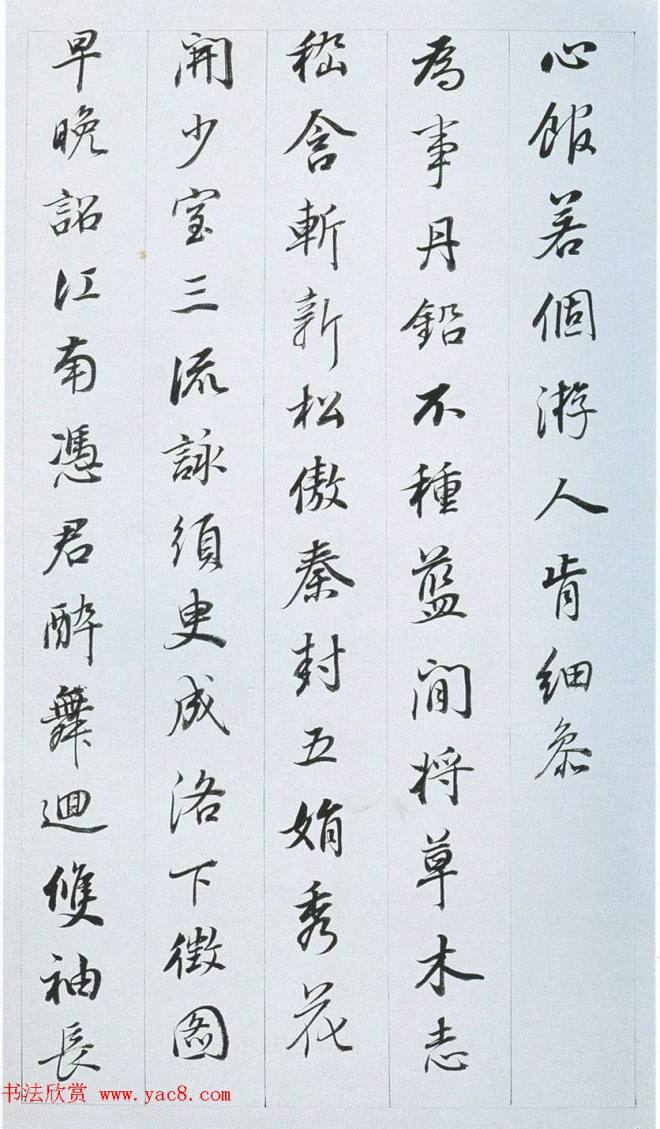 心館若個游人肯細參
為事丹鉛不種藍閒將草木志
嵇含斬新松傲秦封五娟秀花
開少室三流詠須臾成洛下徵圖
早晚詔江南憑君醉舞迴雙袖長
书法欣赏 www.yac8.com